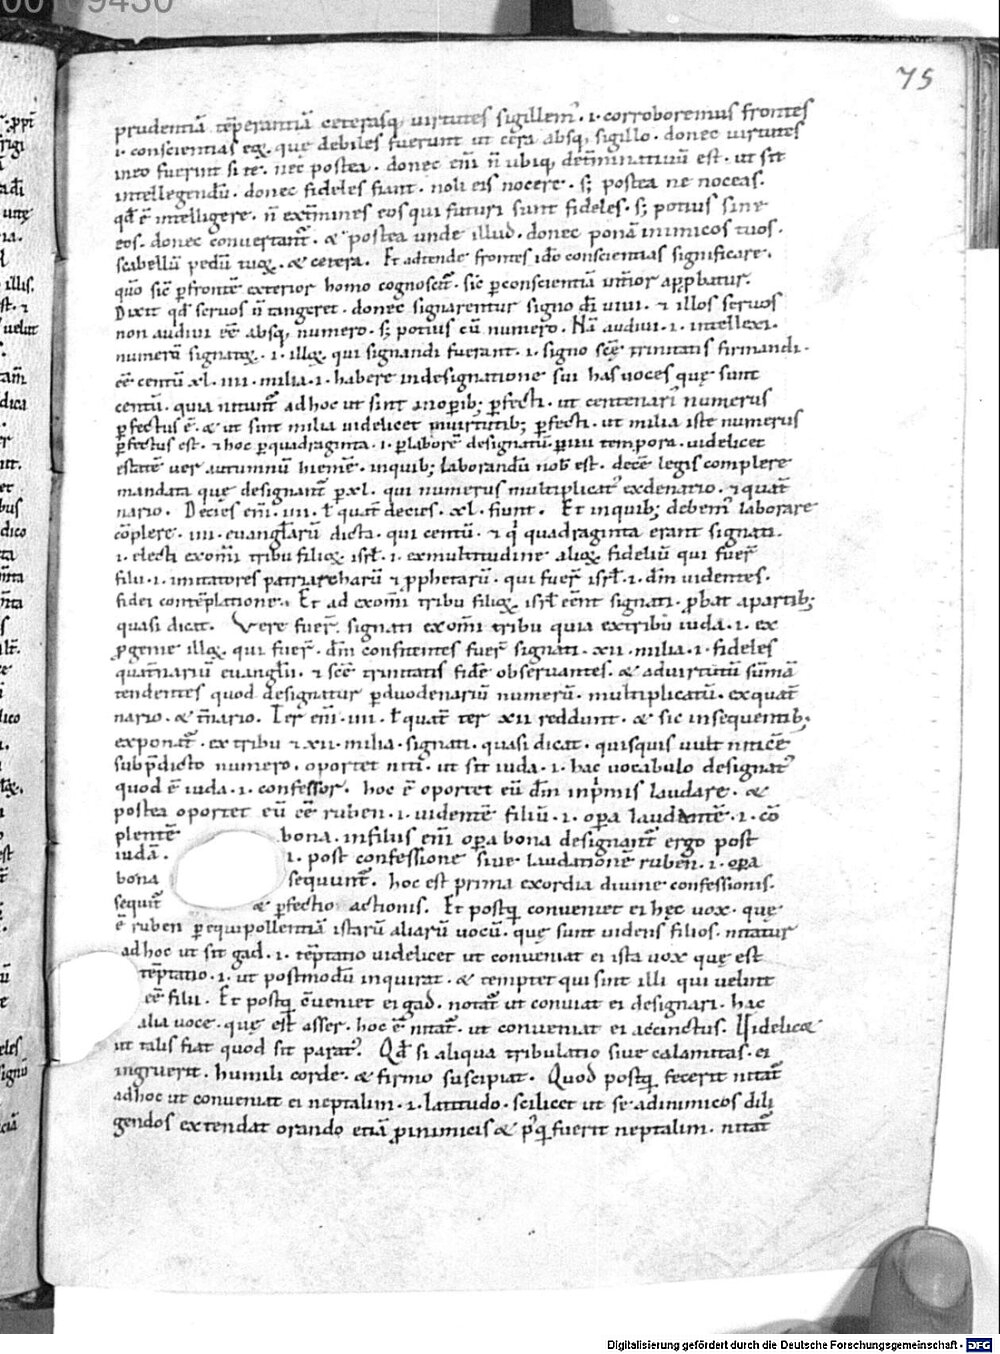 00109430
75
prudentiā tēperantiā ceterasq; uirtutes sigillem᷒ .i. corroboremus frontes
.i. conscientias eoꝝ. quę debiles fuerunt ut cera absq; sigillo. donec uirtutes
in eo fuerunt si te. nec postea. donec eni n̄ ubiq; det̄minatiuū est. ut sit
intellegendū. donec fideles fiant. noli eis nocere. s; postea ne noceas.
qd̄ ē intelligere. n̄ ext̄mines eos qui futuri sunt fideles. s; potius sine
eos. donec conuertant᷒. & postea unde illud. donec ponā inimicos tuos.
scabellū pedū tuoꝝ. & cetera. Et adtende frontes ido conscientias significare.
quo sic̄ p̄ frontē exterior homo cognoscit᷒. sic̄ p̄ conscientiā int̄ior app̄batur.
Dixit qd̄ seruos n̄ tangeret. donec signarentur signo dī uiui. & illos seruos
non audiui eē absq; numero. s; potius cū numero. Nā audiui .i. intellexi.
numerū signatoꝝ .i. illoꝝ qui signandi fuerant .i. signo scę trinitatis firmandi.
eē centū xl. iiii. milia .i. habere in designatione sui has uoces quę sunt
centū. quia nitunt᷒ ad hoc ut sint in opib; p̄fecti. ut centenari᷒ numerus
p̄fectus ē. & ut sint milia uidelicet in uirtutib; p̄fecti. ut milia iste numerus
p̄fectus est. & hoc p̄ quadraginta .i. p̄ laborē designatū p̄ iiii tempora. uidelicet
estatē uer autumnū hiemē. in quib; laborandū nob̄ est. decē legis complere
mandata que designant᷒ p̄ xl. qui numerus multiplicat᷒ ex denario. & quat̄
nario. Decies eni .iiii. ł quat̄ decies. xl. fiunt. Et in quib; debem᷒ laborare
cōplere .iiii. euanglarū dicta. qui centū. & qͥ quadraginta erant signati.
.i. electi ex omī tribu filioꝝ isrł .i. ex multitudine alioꝝ fideliū qui fuer̄
filii .i. imitatores patriarcharū & p̄phetarū. qui fuer̄ isrł .i. dm̄ uidentes.
fidei contēplatione. Et ad ex omī tribu filioꝝ isrł eēnt signati. p̄bat a partib;
quasi dicat. Vere fuer̄. signati ex omī tribu quia ex tribu iuda .i. ex
p̄genie illoꝝ. qui fuer̄. dm̄ confitentes fuer̄ signati. xii. milia .i. fideles
quat̄nariū euanglii. & scē trinitatis fidē obseruantes. & ad uirtutū sūmā
tendentes quod designatur p̄ duodenariū numerū. multiplicatū. ex quat̄
nario. & t̄nario. Ter eni .iiii. ł quat̄ ter xii reddunt. & sic in sequentib;
exponat᷒. ex tribu & xii. milia. signati. quasi dicat. quisquis uult
sub p̄dicto numero. oportet niti. ut sit iuda .i. hac uocabulo designat᷒
quod ē iuda .i. confessor. hoc ē oportet eū dm̄ inp̄mis laudare. &
postea oportet eū eē ruben .i. uidentē filiū .i. opa laudantē .i. cō
plentē bona. in filiis eni opa bona designant᷒ ergo post
iudā. .i. post confessione siue laudationē ruben .i. opa
bona sequunt᷒. hoc est prima exordia diuine confessionis.
sequit᷒ & p̄fectio actionis. Et postq̄ conueniet ei hęc uox. quę
ē ruben p̄ equipollentiā istarū aliarū uocū. quę sunt uidens filios. nitatur
ad hoc ut sit gad .i. tēptatio uidelicet ut conueniat ei ista uox quę est
tēptatio .i. ut postmodū inquirat. & temptet qui sint illi qui uelint
eē filii. Et postq̄ cueniet ei gad. nitat᷒ ut conuiat ei designari. hac
alia uoce. quę est asser. hoc ē nitat᷒. ut conueniat ei accinctus. Uidelic&
ut talis fiat quod sit parat᷒. Qd̄ si aliqua tribulatio siue calamitas. ei
ingruerit. humili corde. & firmo suscipiat. Quod postq̄ fecerit nitat᷒
ad hoc ut conueniat ei neptalim .i. latitudo. scilicet ut se ad inimicos dili
gendos extendat orando etiā p̄ inimicis & p᷒q̄ fuerit neptalim. nitat᷒
Digitalisierung gefördert durch die Deutsche Forschungsgemeinschaft - DFG